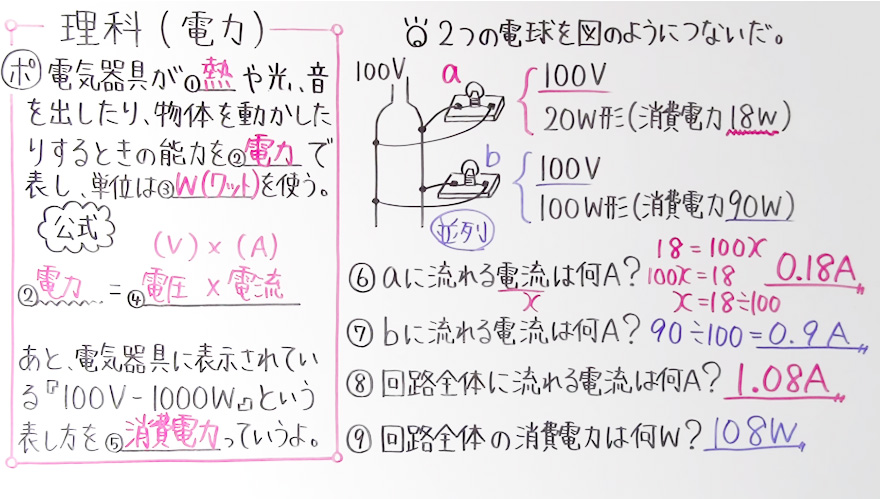 理科(電力)
ポ 電気器具が①熱や光、音
を出したり、物体を動かした
りするときの能力を②電力で
表し、単位は③W(ワット)を使う。
公式
(V)×(A)
②電力=④電圧×電流
あと、電気器具に表示されてい
る『100V-1000W』という
表し方を⑤消費電力っていうよ。
2つの電球を図のようにつないだ。
100V
a
100V
20W形(消費電力18W)
b
100V
100W形(消費電力90W)
並列
⑥aに流れる電流は何A?
x
18=100x
100x=18
x=18÷100
0.18A
⑦bに流れる電流は何A? 90÷100=0.9A
⑧回路全体に流れる電流は何A? 1.08A
⑨回路全体の消費電力は何W? 108W